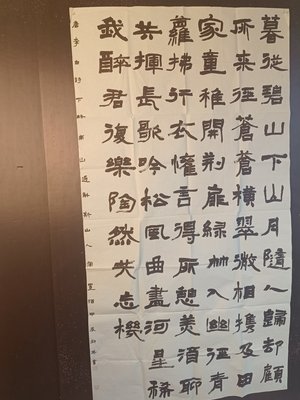 暮從碧山下山月隨人歸却顧
所来徑蒼蒼橫翠微相攜及田
家童稚開荊扉綠竹入幽徑青
蘿拂行衣歡言得所憩美酒聊
共揮長歌吟松風曲盡河星稀
我醉君復樂陶然共忘機
唐李白詩下終南山過斛斯山人宿置酒甲辰